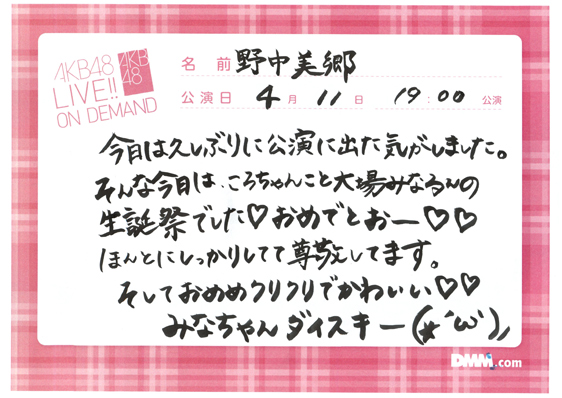 AKB48
LIVE!!
ON DEMAND
AKB
48
名 前 野中美郷
公演日 4月 11日 19:00 公演
今日は久しぶりに公演に出た気がしました。
そんな今日は、ころちゃんこと大場みなるんの
生誕祭でした♡おめでとおー♡♡
ほんとにしっかりしてて尊敬してます。
そしておめめクリクリでかわいい♡♡
みなちゃんダイスキー(*´ω`)ノ
DMM.com